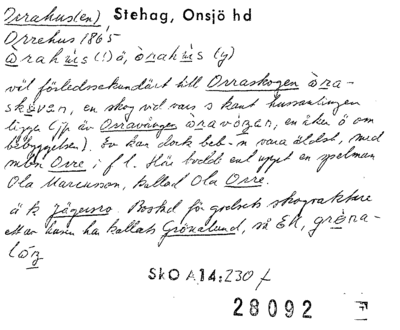 Orrahus(en), Stehag, Onsjö hd
Orrehus 1865
òrahùs (!) ä, òrahùs (y)
väl förledssekundärt till Orraskogen òra-
skövən, en skog vid vars s kant hussamlingen
ligger (jp äv Orravången òravåŋən, en åker ö om
bebyggelsen). Ev kan dock beb-n vara äldst, med
mbn Orre i f l. Här bodde enl uppg en spelman
Ola Marcusson, kallad Ola Orre.
ä k Jägarsro. Bostad för godsets skogvaktare
Ett av husen har kallats Grönalund, så EK, gröna-
SkO A14:230 f
28092